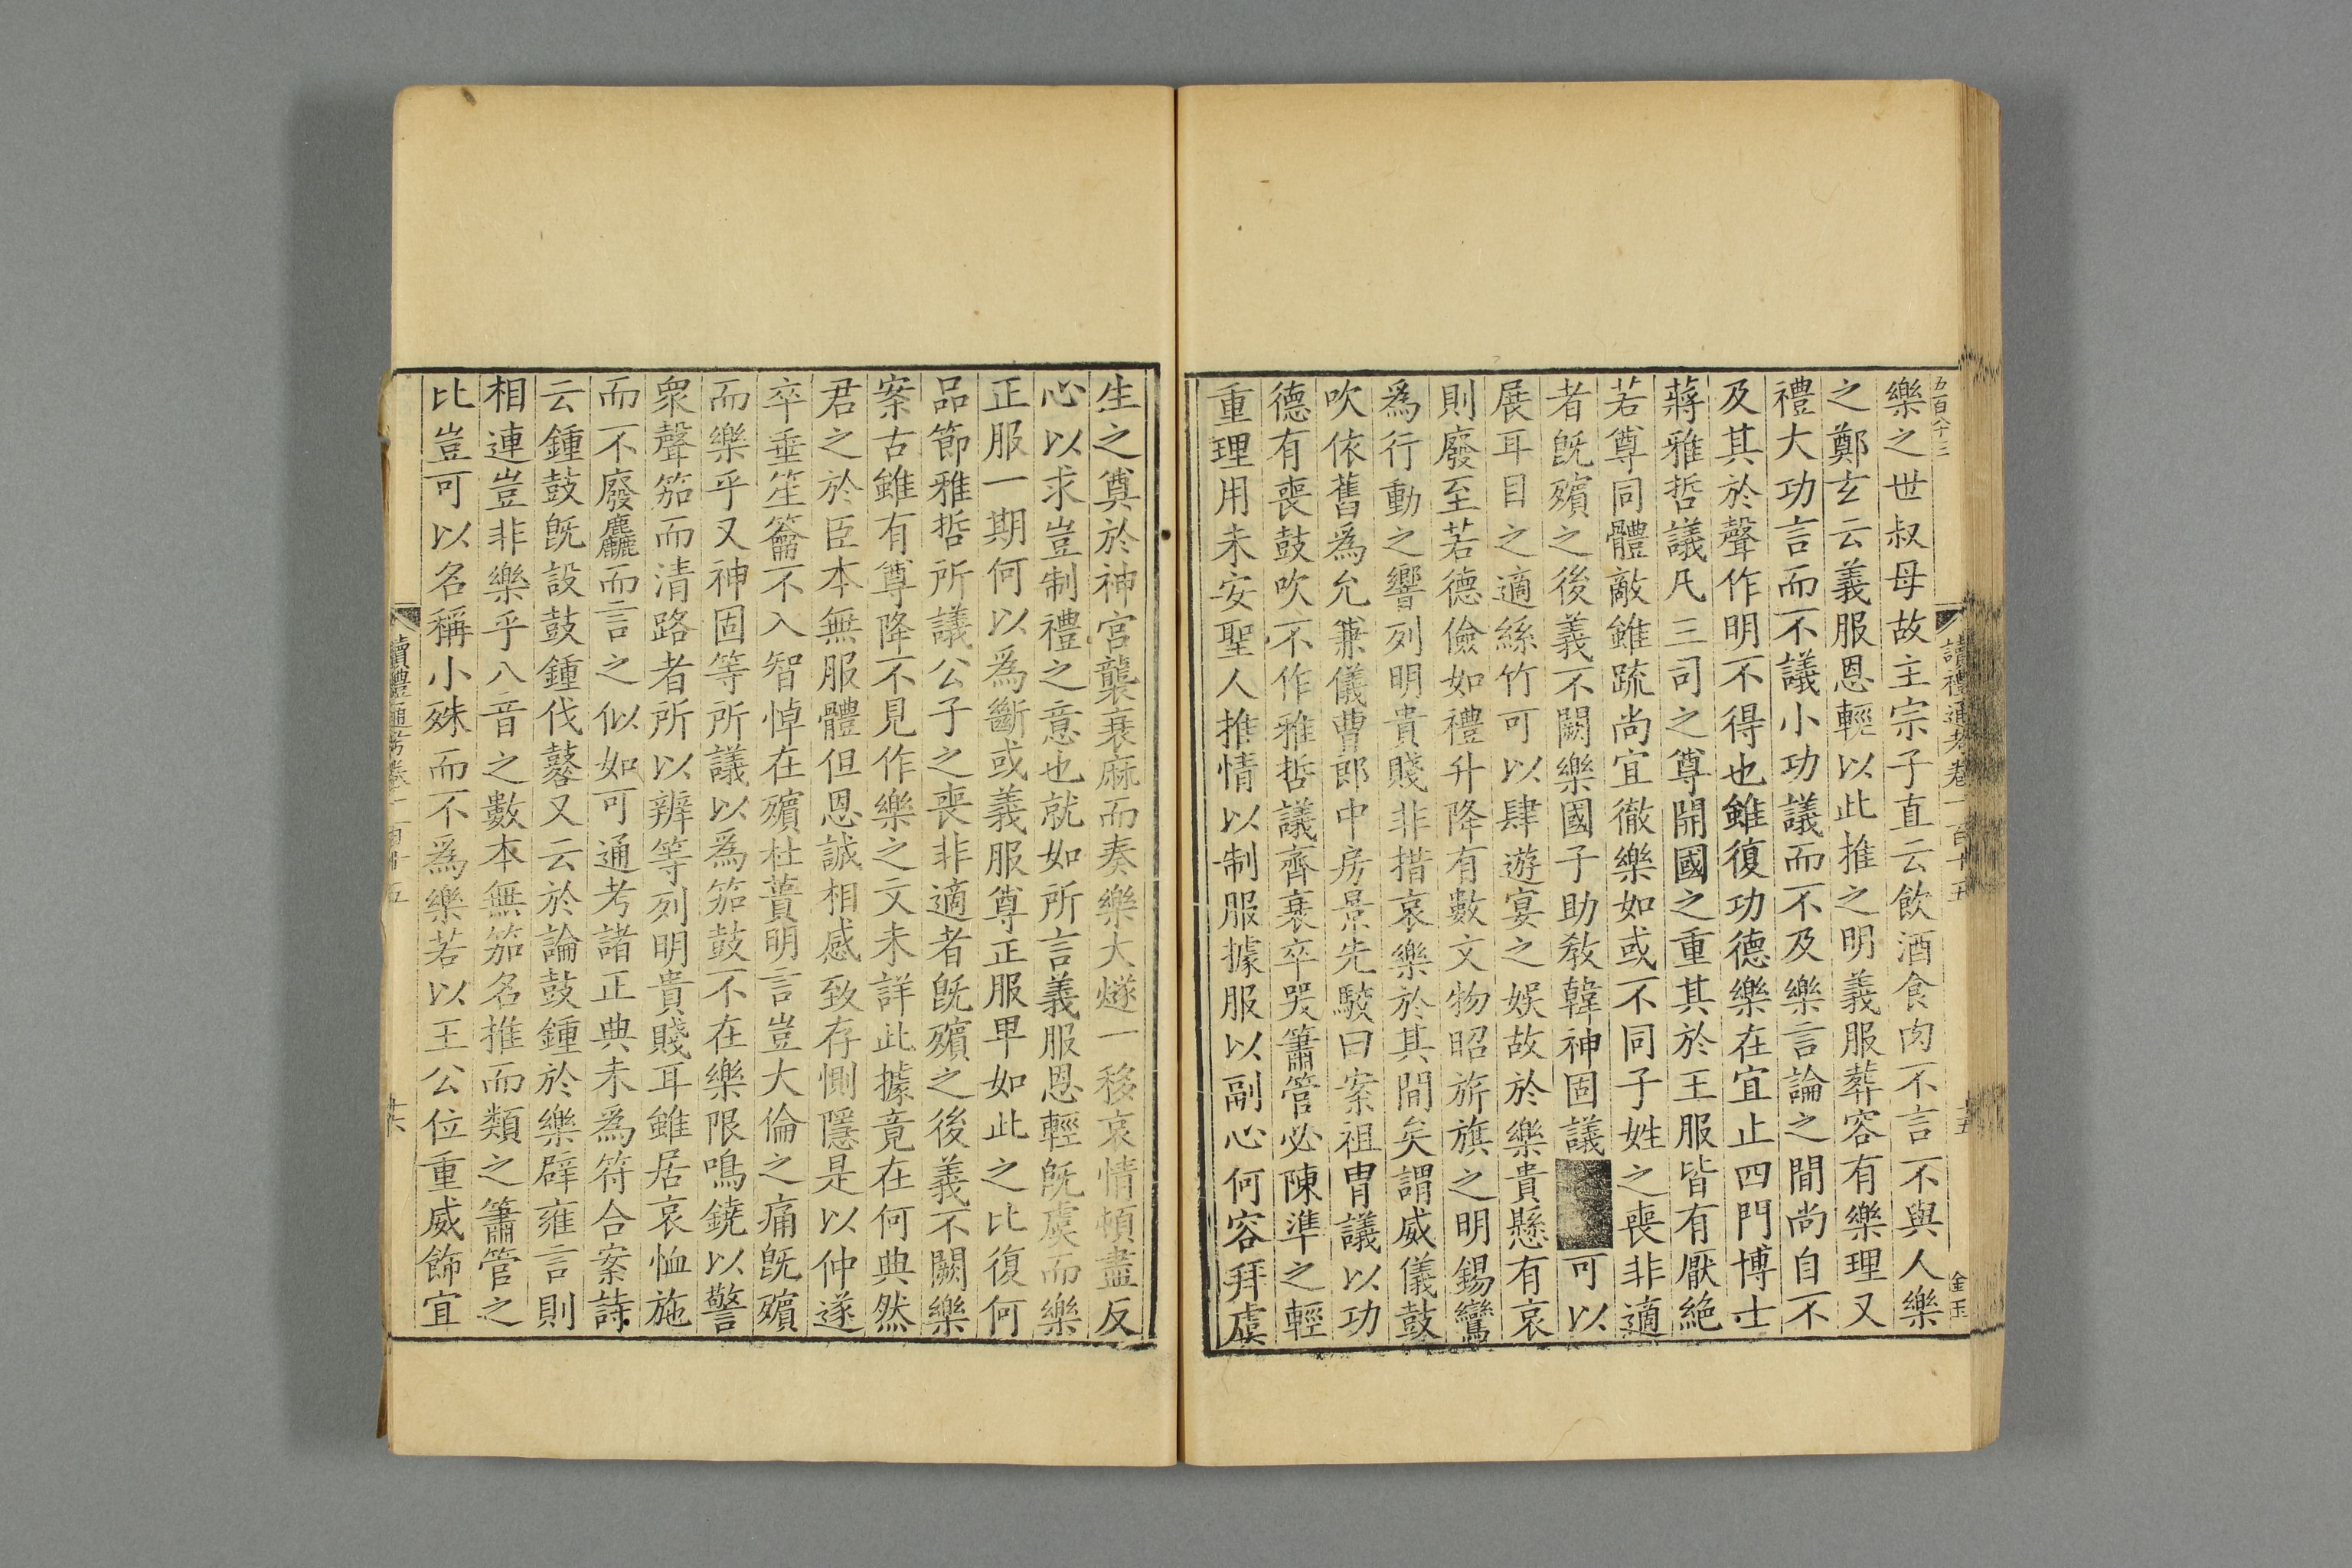 五百八十三
讀禮通考卷一百十五
十五
金玉
樂之世叔母故主宗子直云飲酒食肉不言不與人樂
之鄭玄云義服恩輕以此推之明義服葬容有樂理又
禮大功言而不議小功議而不及樂言論之間尚自不
及其於聲作明不得也雖復功德樂在宜止四門博士
蔣雅哲議凡三司之尊開國之重其於王服皆有厭絶
若尊同體敵雖疏尚宜徹樂如或不同子姓之喪非適
者旣殯之後義不闕樂國子助敎韓神固議可以
展耳目之適絲竹可以肆遊宴之娛故於樂貴懸有哀
則廢至若德儉如禮升降有數文物昭旂旗之明錫鸞
爲行動之響列明貴賤非措哀樂於其間矣謂威儀鼓
吹依舊爲允兼儀曹郎中房景先駮曰案祖胄議以功
德有喪鼓吹不作雅哲議齊衰卒哭簫管必陳準之輕
重理用未安聖人推情以制服據服以副心何容拜虞
生之奠於神宮襲衰麻而奏樂大燧一移哀情頓盡反
心以求豈制禮之意也就如所言義服恩輕旣虞而樂
正服一期何以爲斷或義服尊正服卑如此之比復何
品節雅哲所議公子之喪非適者旣殯之後義不闕樂
案古雖有尊降不見作樂之文未詳此據竟在何典然
君之於臣本無服體但恩誠相感致存惻隱是以仲遂
卒垂笙籥不入智悼在殯杜蕢明言豈大倫之痛旣殯
而樂乎又神固等所議以爲笳鼓不在樂限鳴鐃以警
衆聲笳而清路者所以辨等列明貴賤耳雖居哀恤施
而不廢麤而言之似如可通考諸正典未爲符合案詩
云鍾鼓旣設鼓鍾伐鼛又云於論鼓鍾於樂辟雍言則
相連豈非樂乎八音之數本無笳名推而類之簫管之
比豈可以名稱小殊而不爲樂若以王公位重威飾宜
讀禮通考卷一百十五
十六